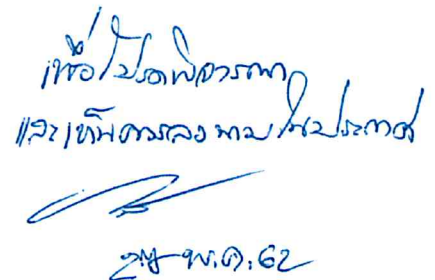 เพื่อโปรดพิจารณา
และเห็นควรลงนามในประกาศ
พ.ค. 62